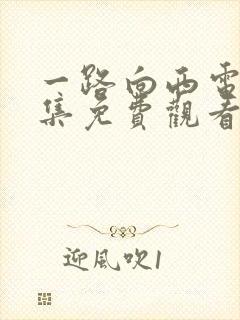 一路向西電
集免費觀看
迎風吹1